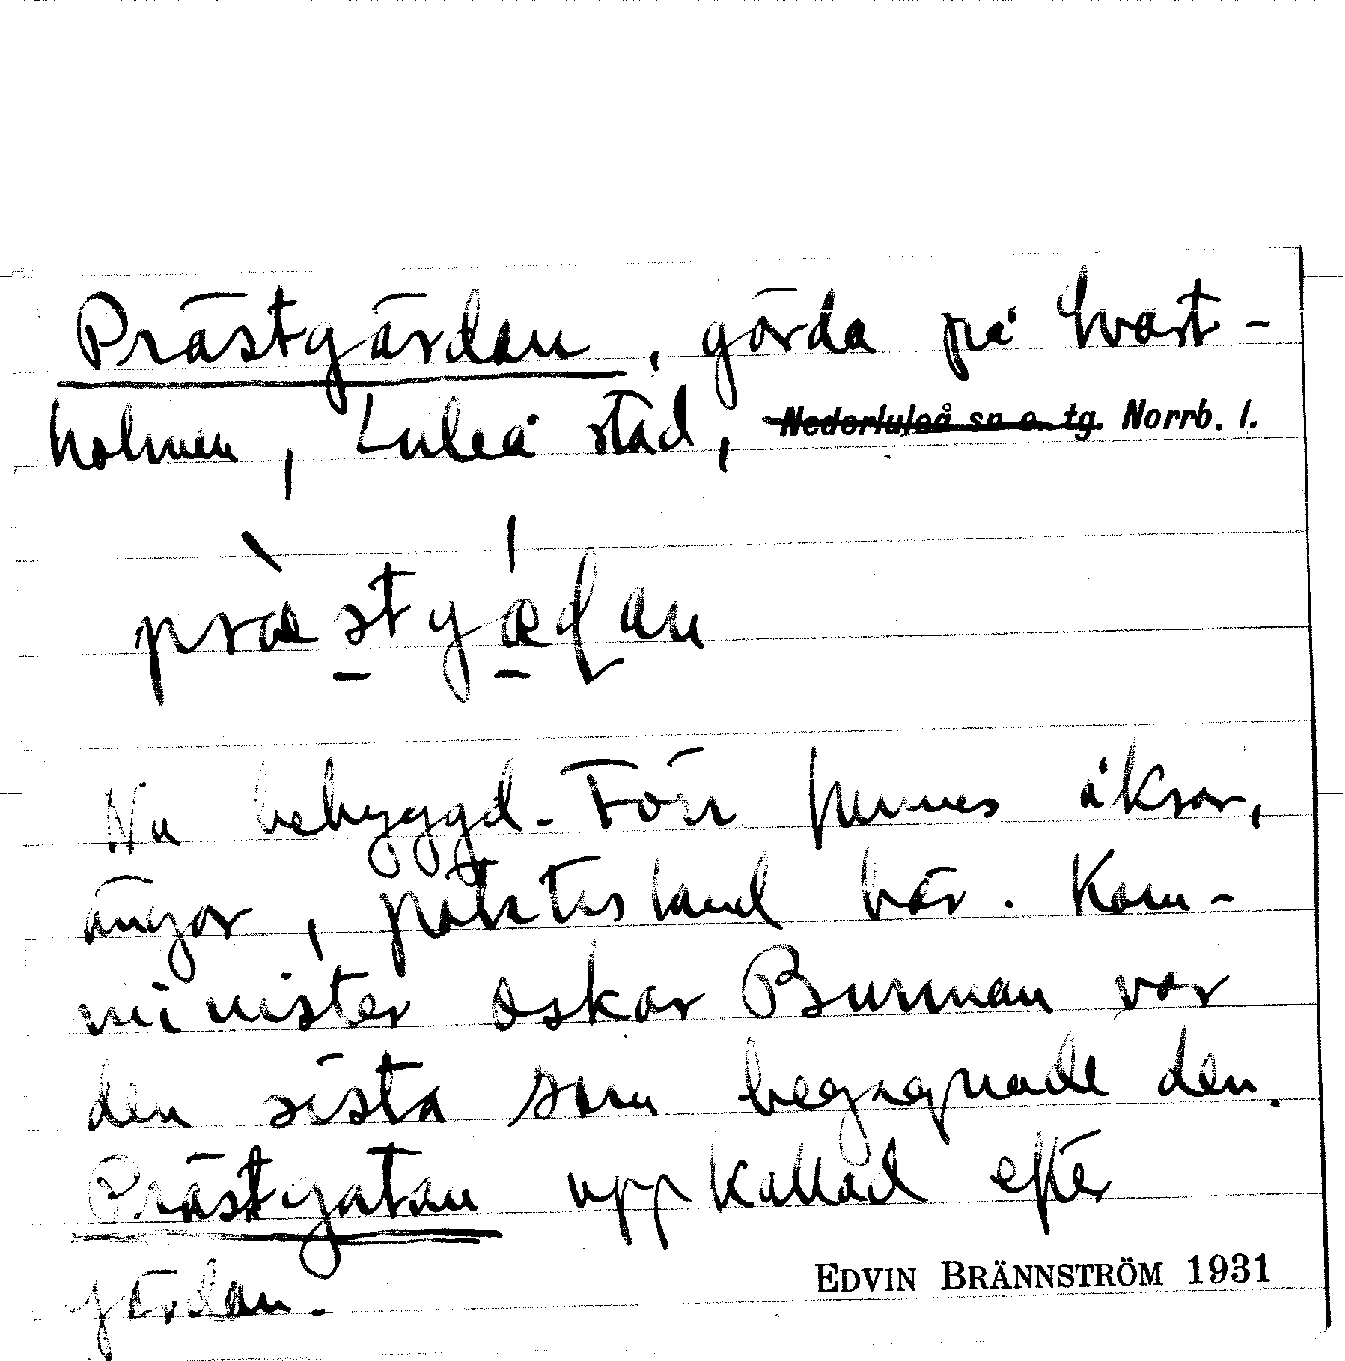 Prästgärdan, gärda på Svart-
holmen, Luleå stad, Nederluleå sn o. tg. Norrb. l.
Nu bebyggd. Förr funnos åkrar,
ängar, potatisland här. Kom-
minister Oskar Burman var
den sista som begagnade den.
Prästgatan uppkallad efter
gärdan.
EDVIN BRÄNNSTRÖM 1931